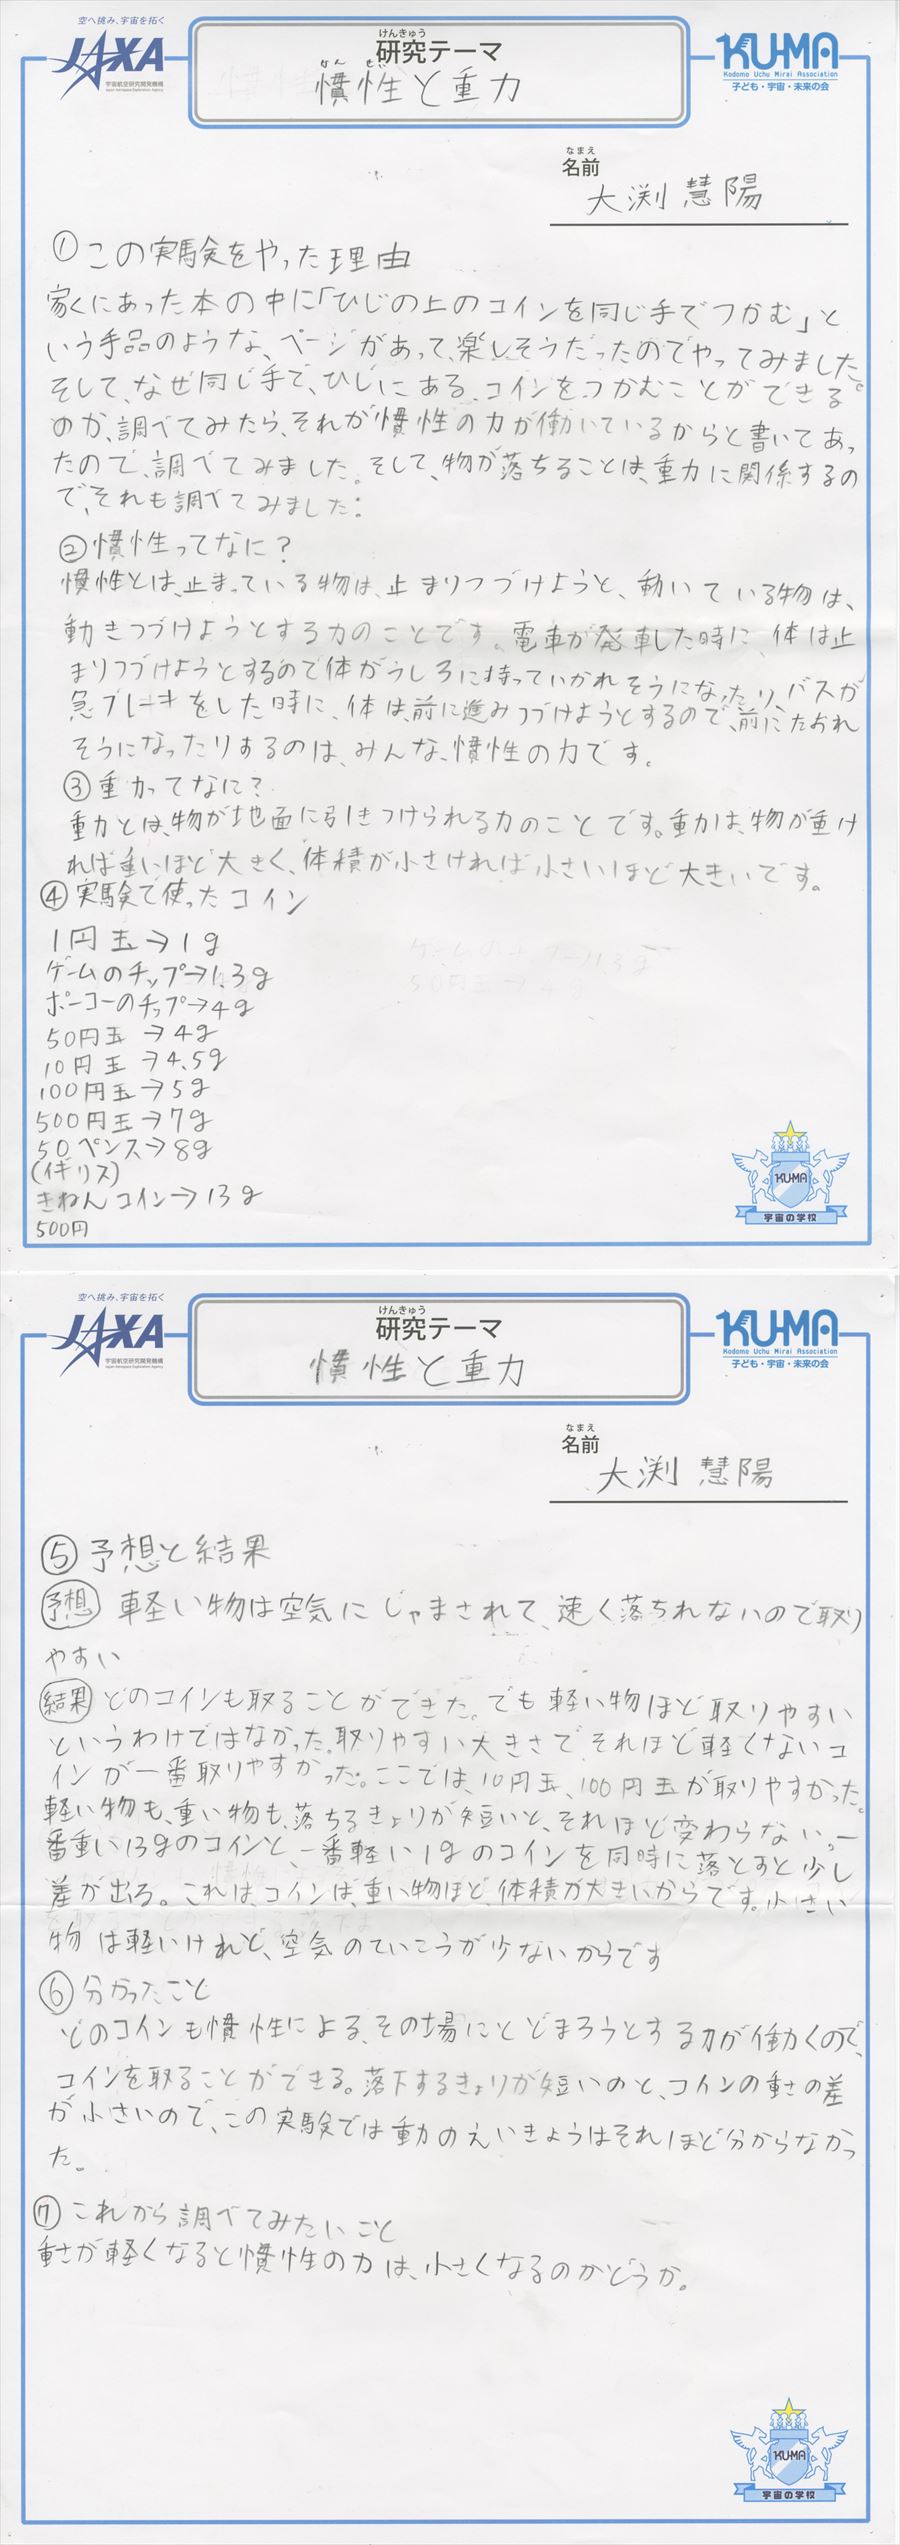 空へ挑み、宇宙を拓く
JAXA
宇宙航空研究開発機構
Japan Aerospace Exploration Agency
けんきゅう
研究テーマ
かん せい
慣性と重力
KU-MA
Kodomo Uchu Mirai Association
子ども・宇宙・未来の会
なまえ
名前
大渕 慧陽
①この実験をやった理由
家くにあった本の中に「ひじの上のコインを同じ手でつかむ」と
いう手品のような、ページがあって、楽しそうだったのでやってみました。
そして、なぜ同じ手で、ひじにある、コインをつかむことができる
のか、調べてみたら、それが慣性の力が働いているからと書いてあっ
たので、調べてみました。そして、物が落ちることは、重力に関係するの
で、それも調べてみました。
②慣性ってなに?
慣性とは、止まっている物は、止まりつづけようと、動いている物は、
動きつづけようとする力のことです。電車が発車した時に、体は止
まりつづけようとするので体がうしろに持っていかれそうになったり、バスが
急ブレーキをした時に、体は前に進みつづけようとするので、前にたおれ
そうになったりするのは、みんな、慣性の力です。
③重力ってなに?
重力とは、物が地面に引きつけられる力のことです。重力は、物が重け
れば重いほど大きく、体積が小さければ小さいほど大きいです。
④実験で使ったコイン
1円玉→1g
ゲームのチップ→1.3g
ポーコーのチップ→4g
50円玉→4g
10円玉→4.5g
100円玉→5g
500円玉→7g
50ペンス→8g
(イギリス)
きねんコイン→13g
500円
KU-MA
宇宙の学校
空へ挑み、宇宙を拓く
JAXA
宇宙航空研究開発機構
Japan Aerospace Exploration Agency
けんきゅう
研究テーマ
慣性と重力
KU-MA
Kodomo Uchu Mirai Association
子ども・宇宙・未来の会
なまえ
名前
大渕 慧陽
⑤予想と結果
予想 軽い物は空気にじゃまされて、速く落ちれないので取り
やすい
結果 どのコインも取ることができた。でも軽い物ほど取りやすい
というわけではなかった。取りやすい大きさで、それほど軽くないコ
インが一番取りやすかった。ここでは、10円玉、100円玉が取りやすかった。
軽い物も、重い物も、落ちるきょりが短いと、それほど変わらない。一
番重い13gのコインと、一番軽い1gのコインを同時に落とすと少し
差が出る。これは、コインは、重い物ほど、体積が大きいからです。小さい
物は軽いけれど、空気のていこうが少ないからです
⑥分かったこと
どのコインも慣性による、その場にとどまろうとする力が働くので、
コインを取ることができる。落下するきょりが短いのと、コインの重さの差
が小さいので、この実験では重力のえいきょうはそれほど分からなかっ
た。
⑦これから調べてみたいこと
重さが軽くなると慣性の力は、小さくなるのかどうか。
KU-MA
宇宙の学校